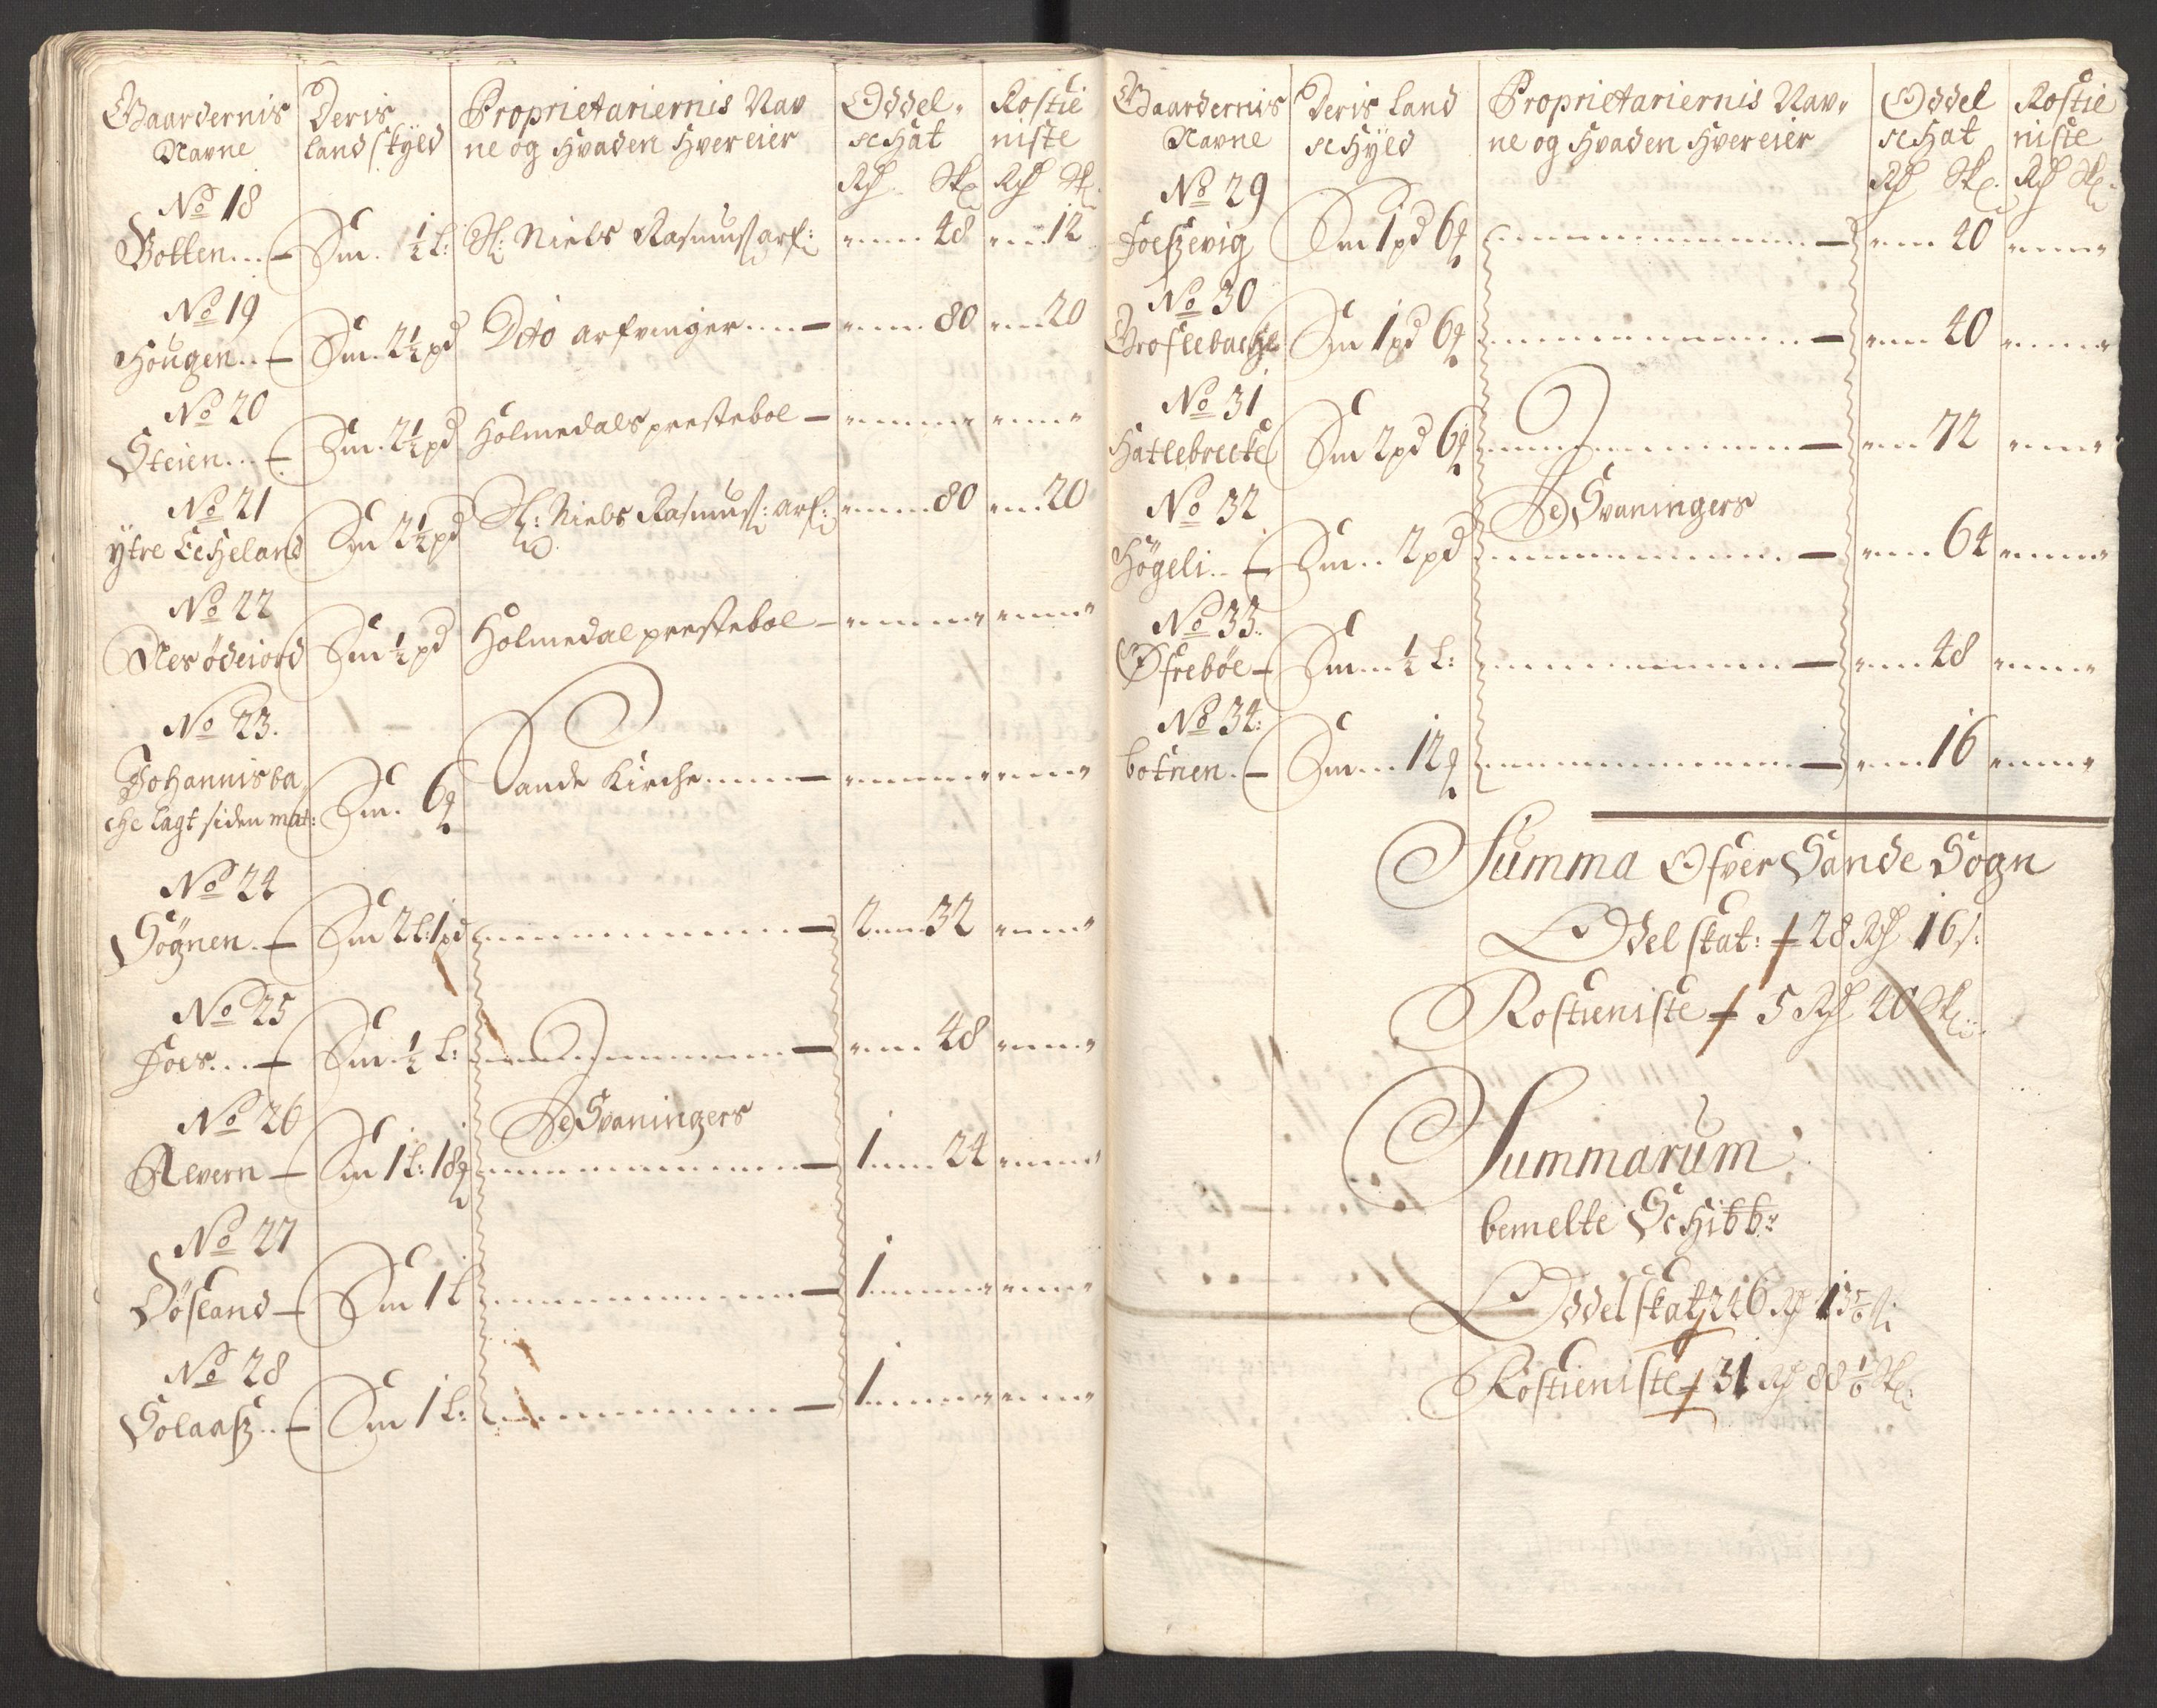 Gaardernis Navne | Deris landskyld | Proprietariernis Navne og Hvad en Hver eier | Oddel-schat | Rostieniste
Rd Sk | Rd Sk
No 18
Botten | Sm. ½ l: | Sl: Niels Rasmuss: arf: | 48 | 12
No 19
Hougen | Sm. 2½ pd | Dito arfvinger | 80 | 20
No 20
Steien | Sm. 2½ pd | Holmedals prestebol
No 21
ytre Echeland | Sm 2½ pd | Sl: Niels Rasmuss: arf: | 80 | 20
No 22
Nes ödeiord | Sm ½ pd | Holmedal prestebol
No 23.
Johannisba
che lagt siden mat: | Sm. 6 | Sande Kirche
No 24
Sögnen | Sm 2 l: 1 pd | 2 32
No 25
Foss | Sm. ½ l: | 48
De Svaningers
No 26
Alvern | Sm 1 l: 18 | 1 24
No 27
Dösland | Sm 1 l | 1
No 28
Solaasz | Sm 1 l: | 1
Gaardernis Navne | Deris land schyld | Proprietariernis Navne og Hvad en Hver eier | Oddel schat | Rostieniste
Rd Sk | Rd Sk
No 29
Joeszevig | Sm 1 pd 6 | 40
No 30
Groslebache | Sm 1 pd 6 | 40
No 31
Hatlebrecke | Sm 2 pd 6 | 72
De Svaningers
No 32
Högeli | Sm 2 pd | 64
No 33.
Øfreböe | Sm ½ l: | 48
No 34:
botnen | Sm 12 | 16
Summa Ofver Sande Sogn
Odel skat: 28 Rd 16 s:
Rostieniste 5 Rd 20 Sk
Summarum
bemelte Schibb:
Oddel skat 226 Rd
Rostieniste 31 Rd